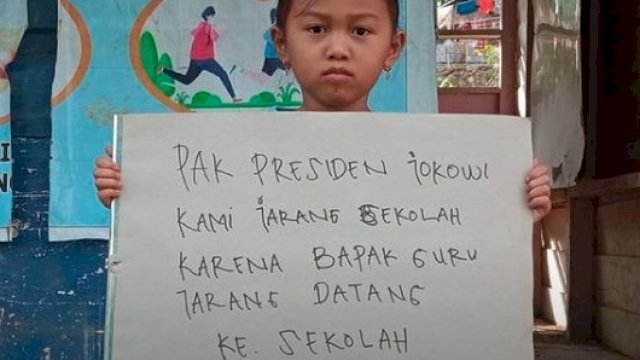 PAK PRESIDEN JOKOWI
KAMI JARANG SEKOLAH
KARENA BAPAK GURU
JARANG DATANG
KE. SEKOLAH